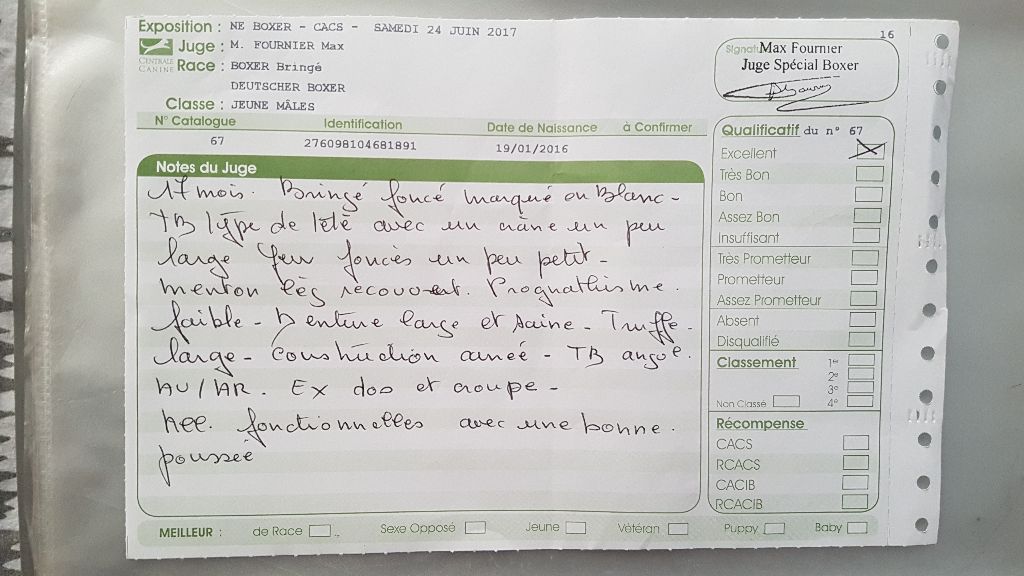 16
Exposition : NE BOXER - CACS - SAMEDI 24 JUIN 2017
Juge : M. FOURNIER Max
CENTRALE CANINE
Race : BOXER Bringé
DEUTSCHER BOXER
Classe : JEUNE MÂLES
Signatu
Max Fournier
Juge Spécial Boxer
N° Catalogue Identification Date de Naissance à Confirmer
67 276098104681891 19/01/2016
Notes du Juge
17 mois. Bringé foncé marqué en Blanc -
TB type de tête avec un crâne un peu
large yeux foncés un peu petit -
menton lèg recouvert. Prognathisme.
faible - Denture large et saine - Truffe.
large - Construction carrée - TB angue.
AV/AR. Ex dos et croupe -
All. fonctionnelles avec une bonne.
poussée
Qualificatif du n° 67
Excellent
Très Bon
Bon
Assez Bon
Insuffisant
Très Prometteur
Prometteur
Assez Prometteur
Absent
Disqualifié
Classement 1er
2e
3e
Non Classé 4e
Récompense
CACS
RCACS
CACIB
RCACIB
MEILLEUR : de Race Sexe Opposé Jeune Vétéran Puppy Baby